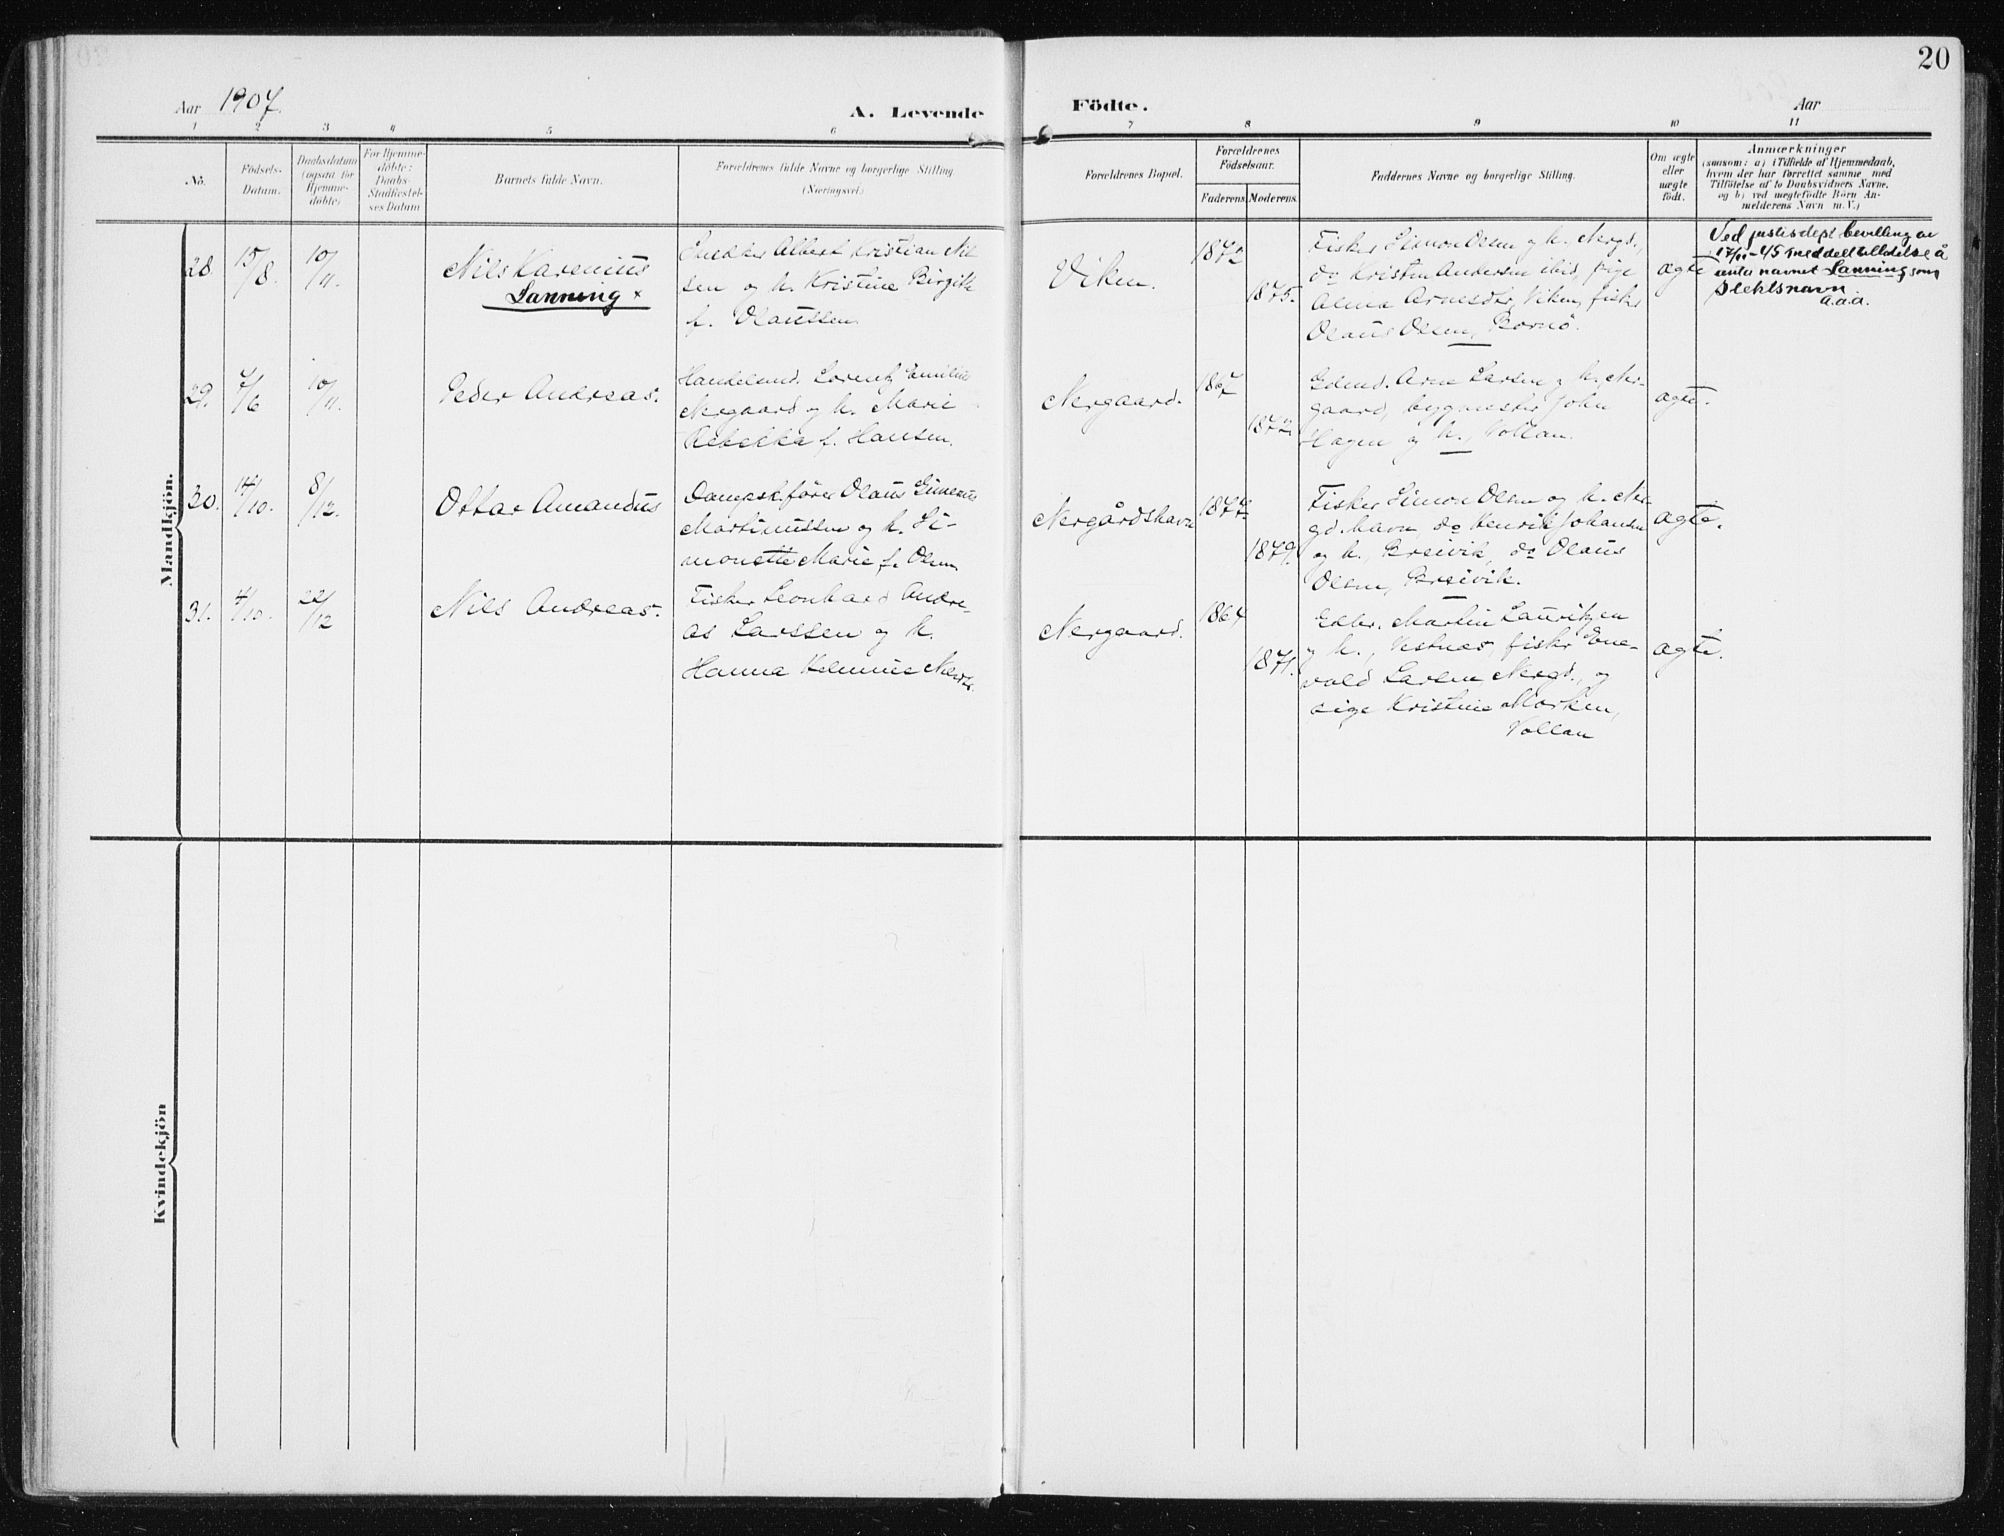 20
Aar 1907.
A. Levende
Födte.
Aar
1 2 3 4 5 6
7 8 9 10 11
No.
Födsels-
Datum.
Daabsdatum
(ogsaa for
Hjemme-
döbte)
For Hjemme-
döbte:
Daabs-
Stadfæstel-
ses Datum
Barnets fulde Navn.
Forældrenes fulde Navne og borgerlige Stilling
(Næringsvei)
Forældrenes Bopæl.
Forældrenes
Födselsaar.
Faderens Moderens
Faddernes Navne og borgerlige Stilling.
Om ægte
eller
uægte
födt.
Anmærkninger
(saasom: a) i Tilfælde af Hjemmedaab,
hvem der har forrettet samme med
Tilföielse af to Daabsvidners Navne,
og b) ved uægtefödte Börn An-
melderens Navn m. V.)
Mandkjön.
28.
15/8
10/11.
Nils Karenius
Lanning x
Snedker Albert Kristian Nil
sen og h. Kristine Birgitte
f. Olaussen
Viken.
1875.
Fisker Simon Olsen og h. Nergd.,
do Kristen Andersen ibid, pige
Alma Arnesdtr, Viken, fisker
Olaus Olsen,
ægte
Ved justisdept bevilling av
17/11-45 meddelt tillatelse å
anta navnet Lanning som
slektsnavn
a.a.a.
29.
7/6
10/11.
Peder Andreas.
Handelsmd. Lorentz Emilius
Nergaard og h. Marie
Rebekka f. Hansen.
Nergaard.
1867
Gdmd. Arne Larsen og h. Ner-
gaard, bygmester John
Hagen og h., Vollan.
ægte.
30.
14/10.
8/12.
Ottar Amandus
Dampskfører Olaus
Martinussen og h. Si-
monette Marie f. Olsen
Nergårdshavn
1879.
Fisker Simon Olsen og h. Ner
gd.havn, do Henrik Johansen
og h., Breivik, do Olaus
Olsen, Breivik.
ægte.
31.
4/10.
22/12
Nils Andreas.
Fisker Leonhard Andre-
as Larssen og h.
Hanna
Nergaard.
1864
1871.
Gdbr. Martin Lauritzen
og h., Vestnæs, fisker Ene-
vold Larsen Nergd., og
pige Kristine Marken,
Vollan
ægte.
Kvindekjön